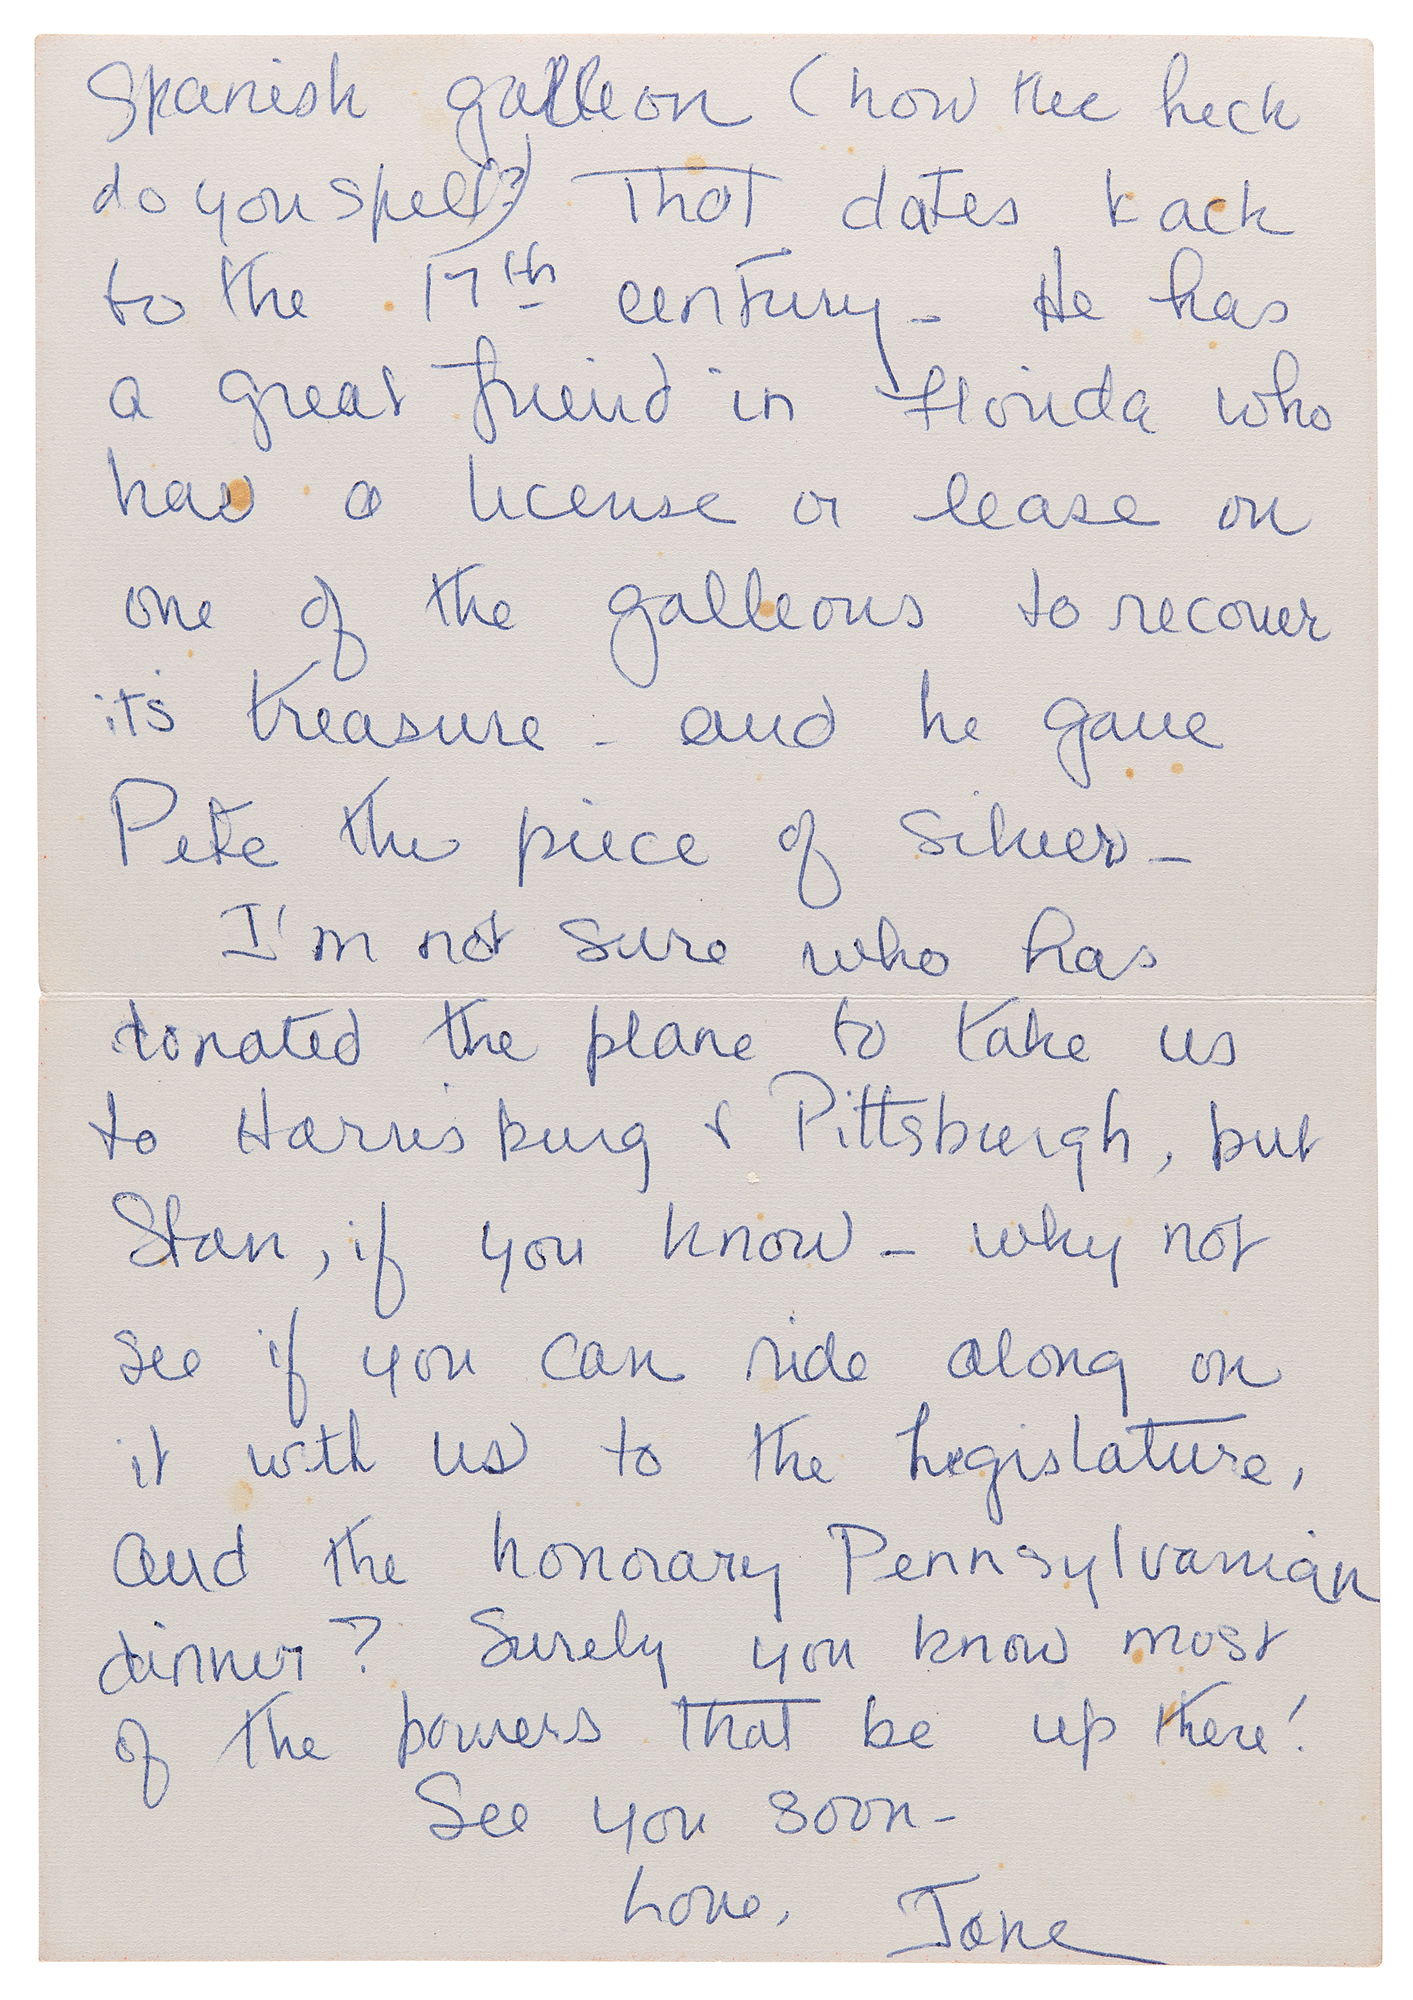 Spanish galleon (how the heck
do you spell?) That dates back
to the 17th century - He has
a great friend in Florida who
has a license or lease on
one of the galleons to recover
it's treasure - and he gave
Pete the piece of silver -
I'm not sure who has
donated the plane to take us
to Harrisburg & Pittsburgh, but
Stan, if you know - why not
see if you can ride along on
it with us to the legislature,
and the honorary Pennsylvanian
dinner? Surely you know most
of the powers that be up there!
See you soon -
Love, Jane